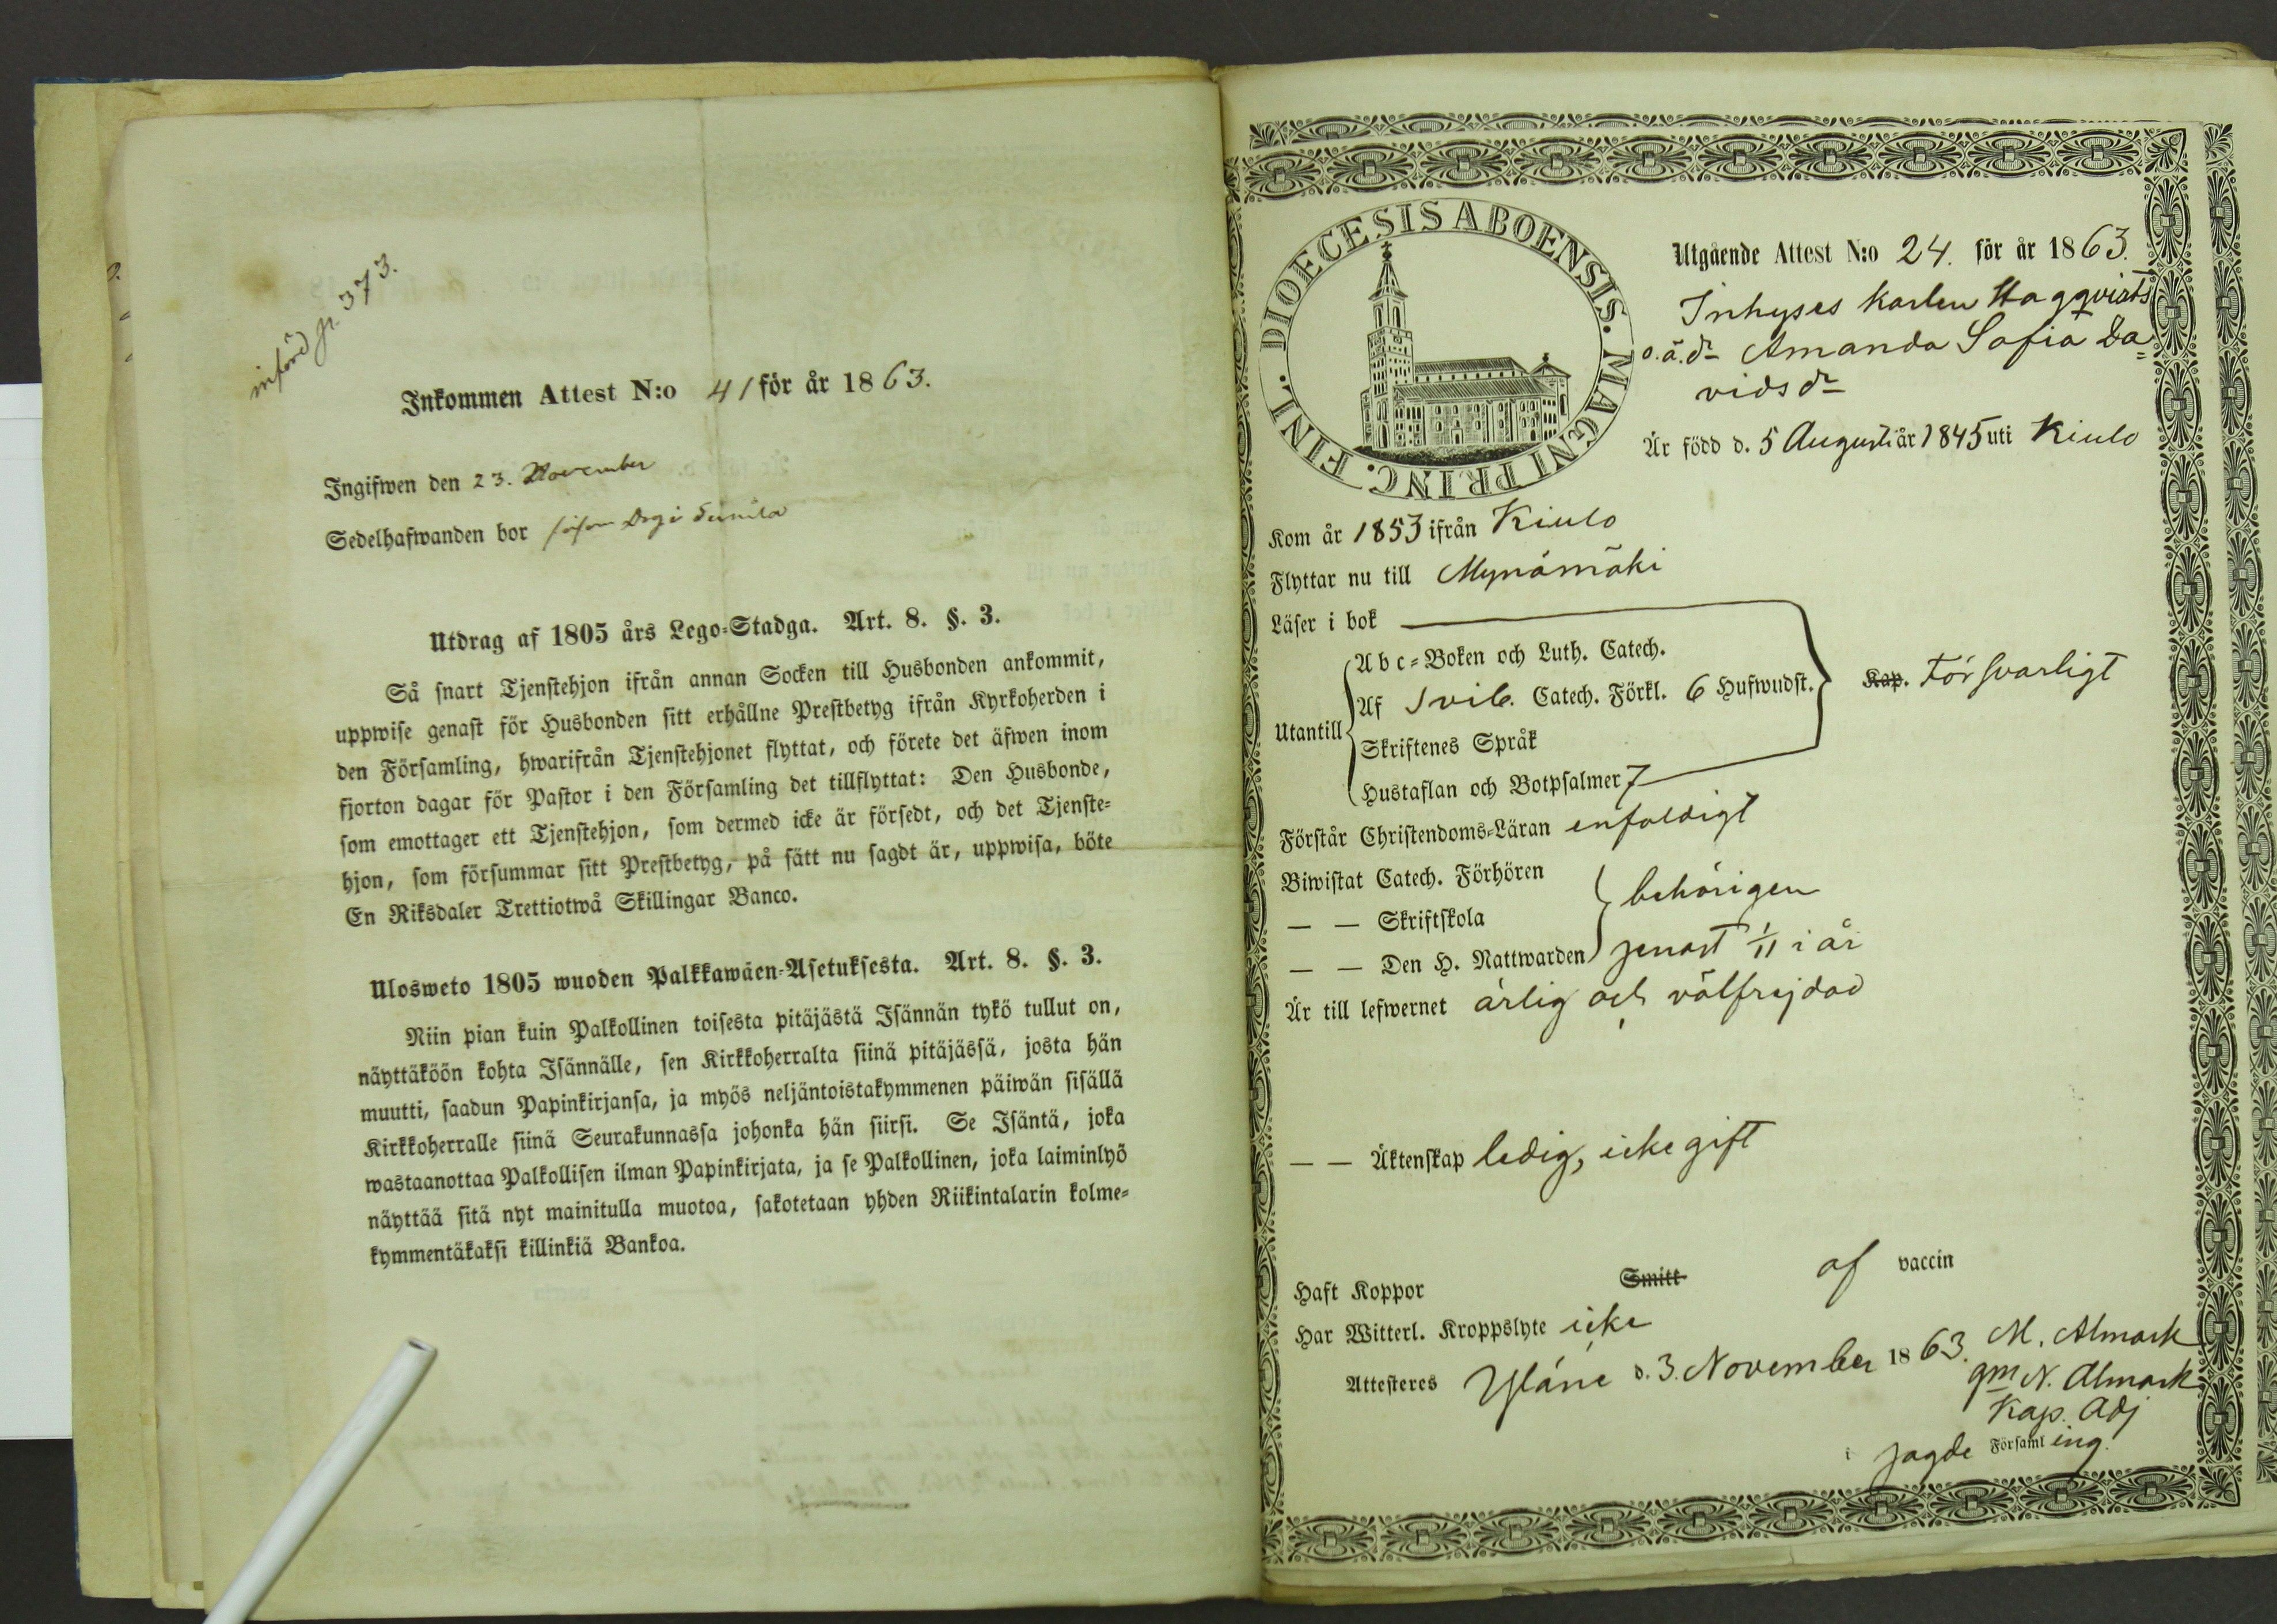 införd p. 373.
Inkommen Attest N:o 41 för år 1863.
Ingifwen den 23. November
Sedelhafwanden bor såsom
Utdrag af 1805 års Lego-Stadga. Art. 8. §. 3.
Så snart Tjenstehjon ifrån annan Socken till Husbonden ankommit,
uppwise genast för Husbonden sitt erhållne Prestbetyg ifrån Kyrkoherden i
den Församling, hwarifrån Tjenstehjonet flyttat, och förete det äfwen inom
fjorton dagar för Pastor i den Församling det tillflyttat: Den Husbonde,
som emottager ett Tjenstehjon, som dermed icke är försedt, och det Tjenste-
hjon, som försummar sitt Prestbetyg, på sätt nu sagdt är, uppwisa, böte
En Riksdaler Trettiotwå Skillingar Banco.
Ulosweto 1805 wuoden Palkkawäen-Asetuksesta. Art. 8. §. 3.
Niin pian kuin Palkollinen toisesta pitäjästä Isännän tykö tullut on,
näyttäköön kohta Isännälle, sen Kirkkoherralta siinä pitäjässä, josta hän
muutti, saadun Papinkirjansa, ja myös neljäntoistakymmenen päiwän sisällä
Kirkkoherralle siinä Seurakunnassa johonka hän siirsi. Se Isäntä, joka
wastaanottaa Palkollisen ilman Papinkirjata, ja se Palkollinen, joka laiminlyö
näyttää sitä nyt mainitulla muotoa, sakotetaan yhden Riikintalarin kolme-
kymmentäkaksi killinkiä Bankoa.
DIOECESIS ABOENSIS. MAGNI PRINC. FINL.
Utgående Attest N:o 24. för år 1863.
Inhyses karlen Haggqvists
o.ä.dr Amanda Sofia Da=
vidsdr
Är född d. 5 Augusti år 1845 uti Kiulo
Kom år 1853 ifrån Kiulo
Flyttar nu till Mynämäki
Läser i bok
Abc=Boken och Luth. Catech.
Utantill Af Svib. Catech. Förkl. 6 Hufwudst. Kap. Försvarligt
Skriftenes Språk
Hustaflan och Botpsalmer 7
Förstår Christendoms-Läran enfaldigt
Biwistat Catech. Förhören
— — Skriftskola behörigen
— — Den H. Nattwarden senast 1/11 i år
Är till lefwernet ärlig och välfrejdad
— — Äktenskap ledig, icke gift
Haft Koppor Smitt af vaccin
Har Witterl. Kroppslyte icke
Attesteres Yläne d. 3. November 1863. M. Almark
gm N. Almark
Kap. Adj
i sagde Församling.